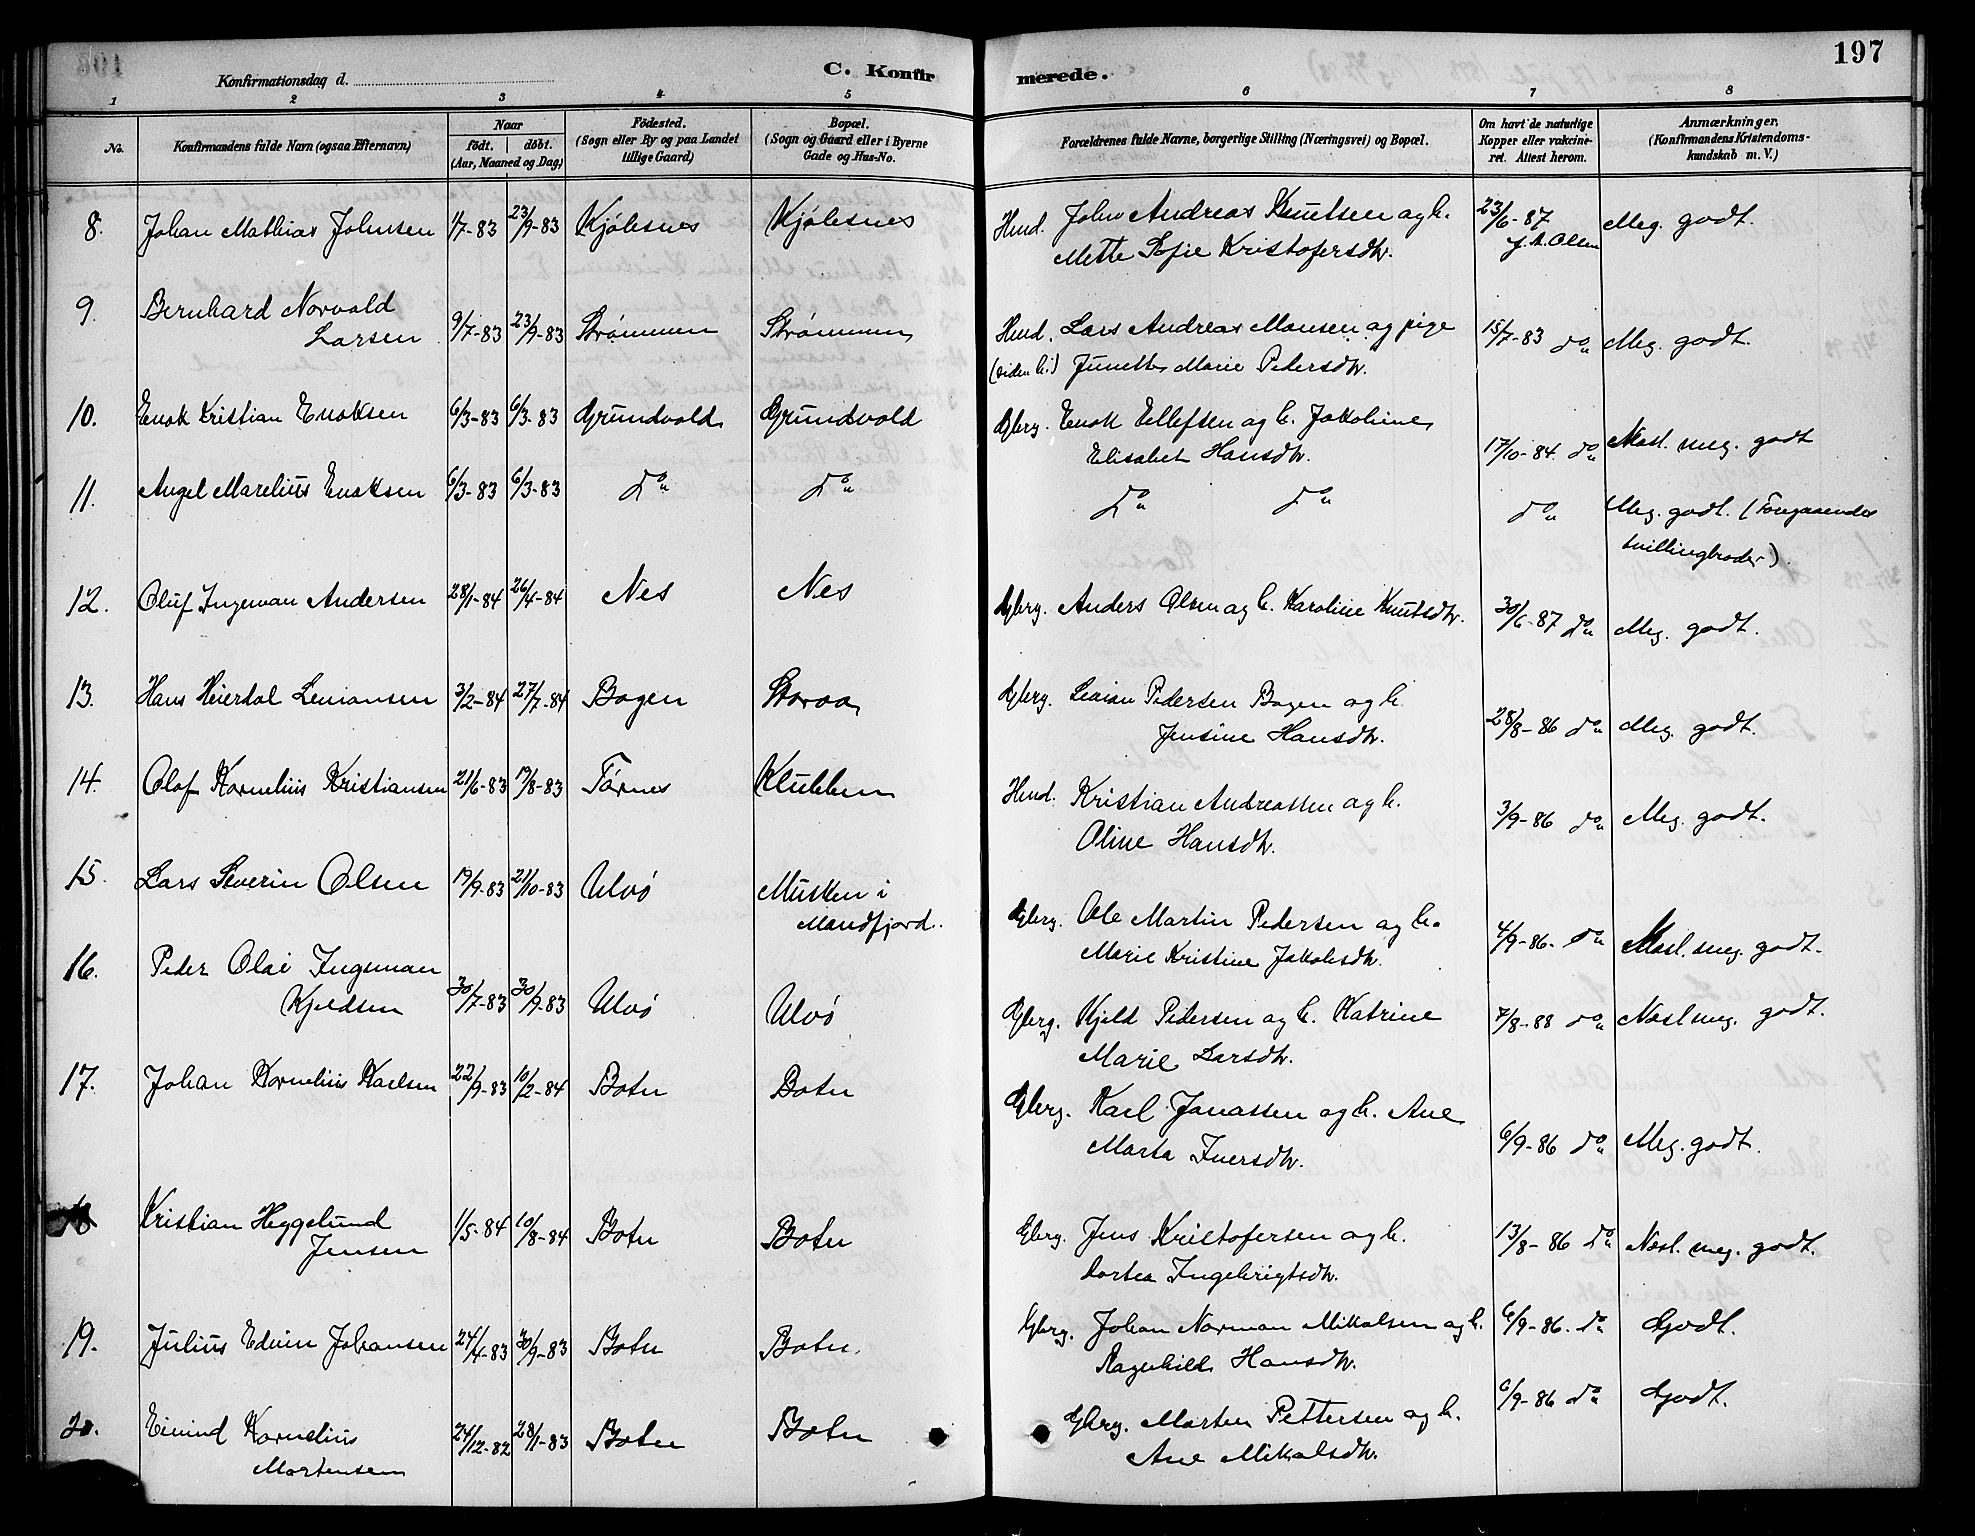 197
Konfirmationsdag d.
C. Konfirmerede.
1 2 3 4 5 6 7 8
No.
Konfirmandens fulde Navn (ogsaa Efternavn)
Naar
födt. döbt.
(Aar, Maaned og Dag)
Födested.
(Sogn eller By og paa Landet
tillige Gaard)
Bopæl.
(Sogn og Gaard eller i Byerne
Gade og Hus-No.
Forældrenes fulde Navne, borgerlige Stilling (Næringsvei) og Bopæl.
Om havt de naturlige
Kopper eller vakcine-
ret. Attest herom.
Anmærkninger.
(Konfirmandens Kristendoms-
kundskab m. V.)
8. Johan Mathias Johnsen 1/7-83 23/9-83 Kjölesnes Kjölesnes Hmd. John Andreas Knutsen og h. 23/6-87 Meg. godt.
Mette Sofie Kristofersdtr. J. A. Olsen
9. Bernhard Norvald
Larsen 9/7-83 23/9-83 Strømmen Strømmen Hmd. Lars Andreas Monsen og pige 15/7-83 do Meg. godt.
(siden h.) Junette Marie Pedersdtr.
10. Enok Kristian Enoksen 6/3-83 6/3-83 Grundvold Grundvold Gbrg. Enok Ellefsen og h. Jakobine
Elisabet Hansdtr. 17/10-84 do Næsl. meg. godt
11. Angel Marelius Enoksen 6/3-83 6/3-83 do do do do do Meg. godt. (Foregaaendes
tvillingbroder)
12. Oluf Ingeman Andersen 28/1-84 26/4-84 Nes Nes Gbrg. Anders Olsen og h. Karoline Knutsdtr. 30/6-87 do Meg. godt.
13. Hans Heierdal Leniansen 3/2-84 27/7-84 Bogen Storaa Gbrg. Pedersen Bogen og h.
Jensine Hansdtr. 28/8-86 do Meg. godt.
14. Olaf Kornelius Kristiansen 21/6-83 19/8-83 Tørnes Klubben Hmd. Kristian Andreassen og h.
Oline Hansdtr. 3/9-86 do Meg. godt.
15. Lars Severin Olsen 19/9-83 21/10-83 Ulvö Musken i
Mandfjord. Gbrg. Ole Martin Pedersen og h.
Marie Kristine Jakobsdtr. 4/9-86. do Næsl. meg. godt.
16. Peder Olai Ingeman
Kjeldsen 30/7-83 30/9-83 Ulvö Ulvö Gbrg. Kjeld Pedersen og h. Katrine
Marie Larsdtr. 7/8-88 do Næsl meg. godt.
17. Johan Kornelius Karlsen 22/9-83 10/2-84 Botn Botn Gbrg. Karl Jonassen og h. Ane
Marta Iversdtr. 6/9-86 do Meg. godt.
18 Kristian Heggelund
Jensen 1/5-84 10/8-84 Botn Botn Gbrg. Jens Kristofersen og h.
Dortea Ingebrigtsdtr. 13/8-86 do Næsl. meg. godt.
19. Julius Edvin Johansen 24/4-83 30/9-83 Botn Botn. Gbrg. Johan Norman Mikalsen og h. 6/9-86. do Godt.
Ragnhild Hansdtr.
20. Eivind Kornelius
Mortensen 24/12-82 28/1-83 Botn Botn Gbrg. Morten Pettersen og h. 6/9-86 do Godt.
Ane Mikalsdtr.